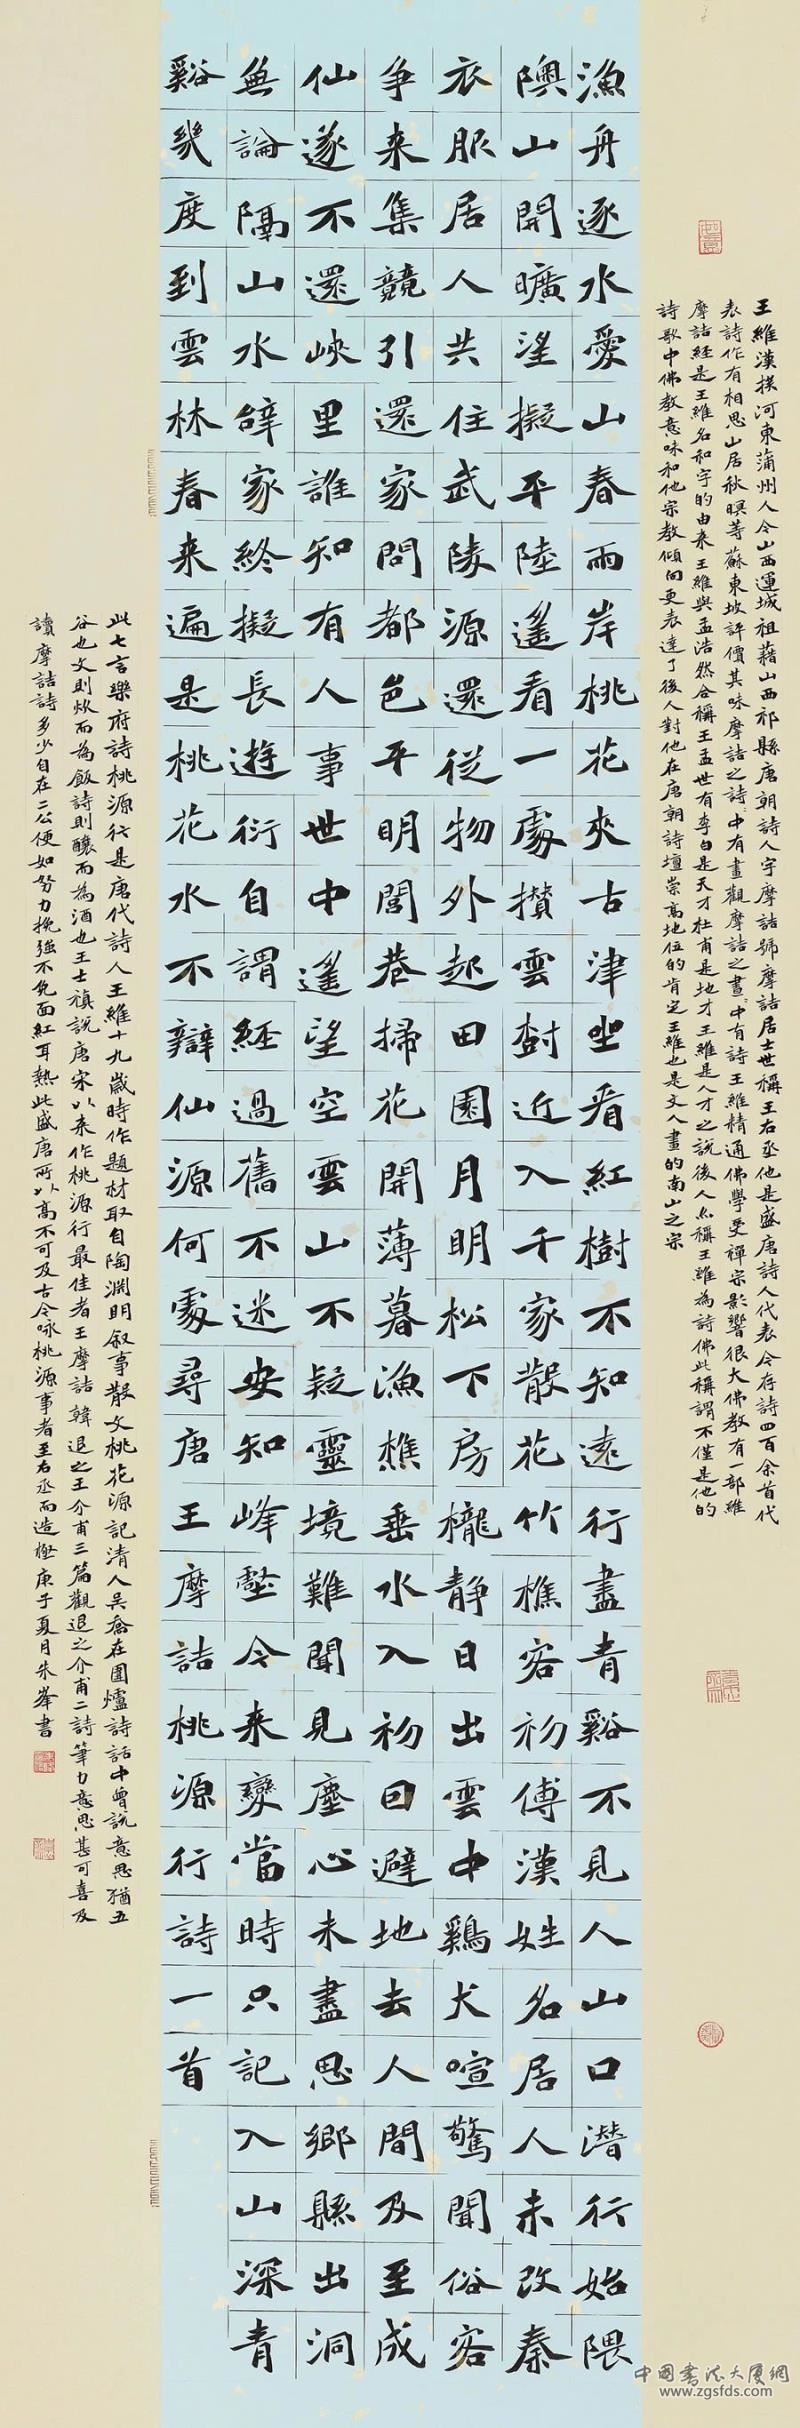 王維漢族河東蒲州人今山西運城祖藉山西祁縣唐朝詩人字摩詰號摩詰居士世稱王右丞他是盛唐詩人代表今存詩四百余首代
表詩作有相思山居秋暝等蘇東坡評價其味摩詰之詩詩中有畫觀摩詰之畫畫中有詩王維精通佛學受禪宗影響很大佛教有一部維
摩詰經是王維名和字的由来王維與孟浩然合稱王孟世有李白是天才杜甫是地才王維是人才之説後人亦稱王維為詩佛此稱謂不僅是他的
詩歌中佛教意味和他宗教傾向更表達了後人對他在唐朝詩壇崇高地位的肯定王維也是文人畫的南山之宗
漁舟逐水愛山春雨岸桃花夾古津坐看紅樹不知遠行盡青谿不見人山口潛行始隈
隩山開曠望擬平陸遙看一處攢雲樹近入千家散花竹樵客初傳漢姓名居人未改秦
衣服居人共住武陵源還從物外起田園月明松下房櫳靜日出雲中鷄犬喧驚聞俗客
爭来集競引還家問都邑平明閭巷掃花開薄暮漁樵垂水入初因避地去人間及至成
仙遂不還峽里誰知有人事世中遙望空雲山不疑靈境難聞見塵心未盡思鄉縣出洞
無論隔山水辭家終擬長遊衍自謂經過舊不迷安知峰壑今来變當時只記入山深青
谿幾度到雲林春来遍是桃花水不辯仙源何處尋唐王摩詰桃源行詩一首
此七言樂府詩桃源行是唐代詩人王維十九歲時作題材取自陶淵明叙事散文桃花源記清人吴喬在圍爐詩話中曾說意思猶五
谷也文則炊而為飯詩則釀而為酒也王士禛説唐宋以来作桃源行最佳者王摩詰韓退之王介甫三篇觀退之介甫二詩筆力意思甚可喜及
讀摩詰詩多少自在二公便如努力挽强不免面紅耳熱此盛唐所以高不可及古今咏桃源事者至右丞而造極庚子夏月朱峰書
中国书法大厦網
www.zgsfds.com